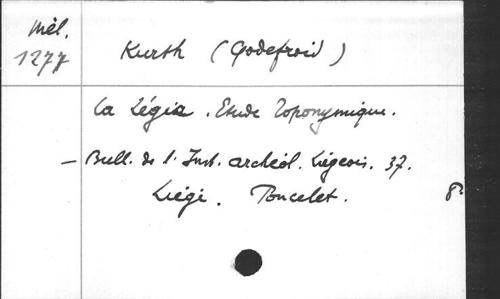 Mél.
1277
Kurth (Godefroid)
La Légia. Etude Toponymique.
– Bull. de l'Inst. archéol. Liégeois. 37.
Liège. Poncelet. 8º